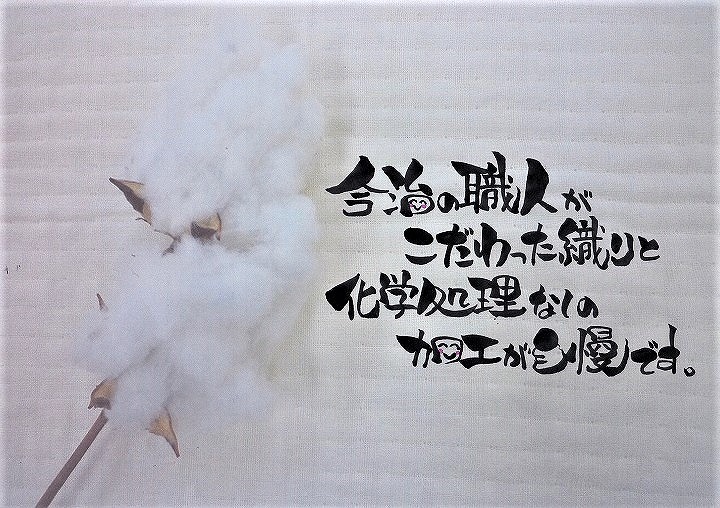 今治の職人が
こだわった織りと
化学処理なしの
加工が自慢です。